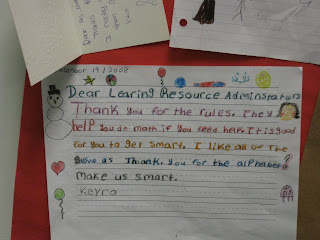 19/2008
Dear Learing Resource Adminstrators
Thank you for the rules. They
help you do math if you need help. It is good
for you to get smart. I like all of the
Thank. you for the alphabet
make us smart.
Keyra